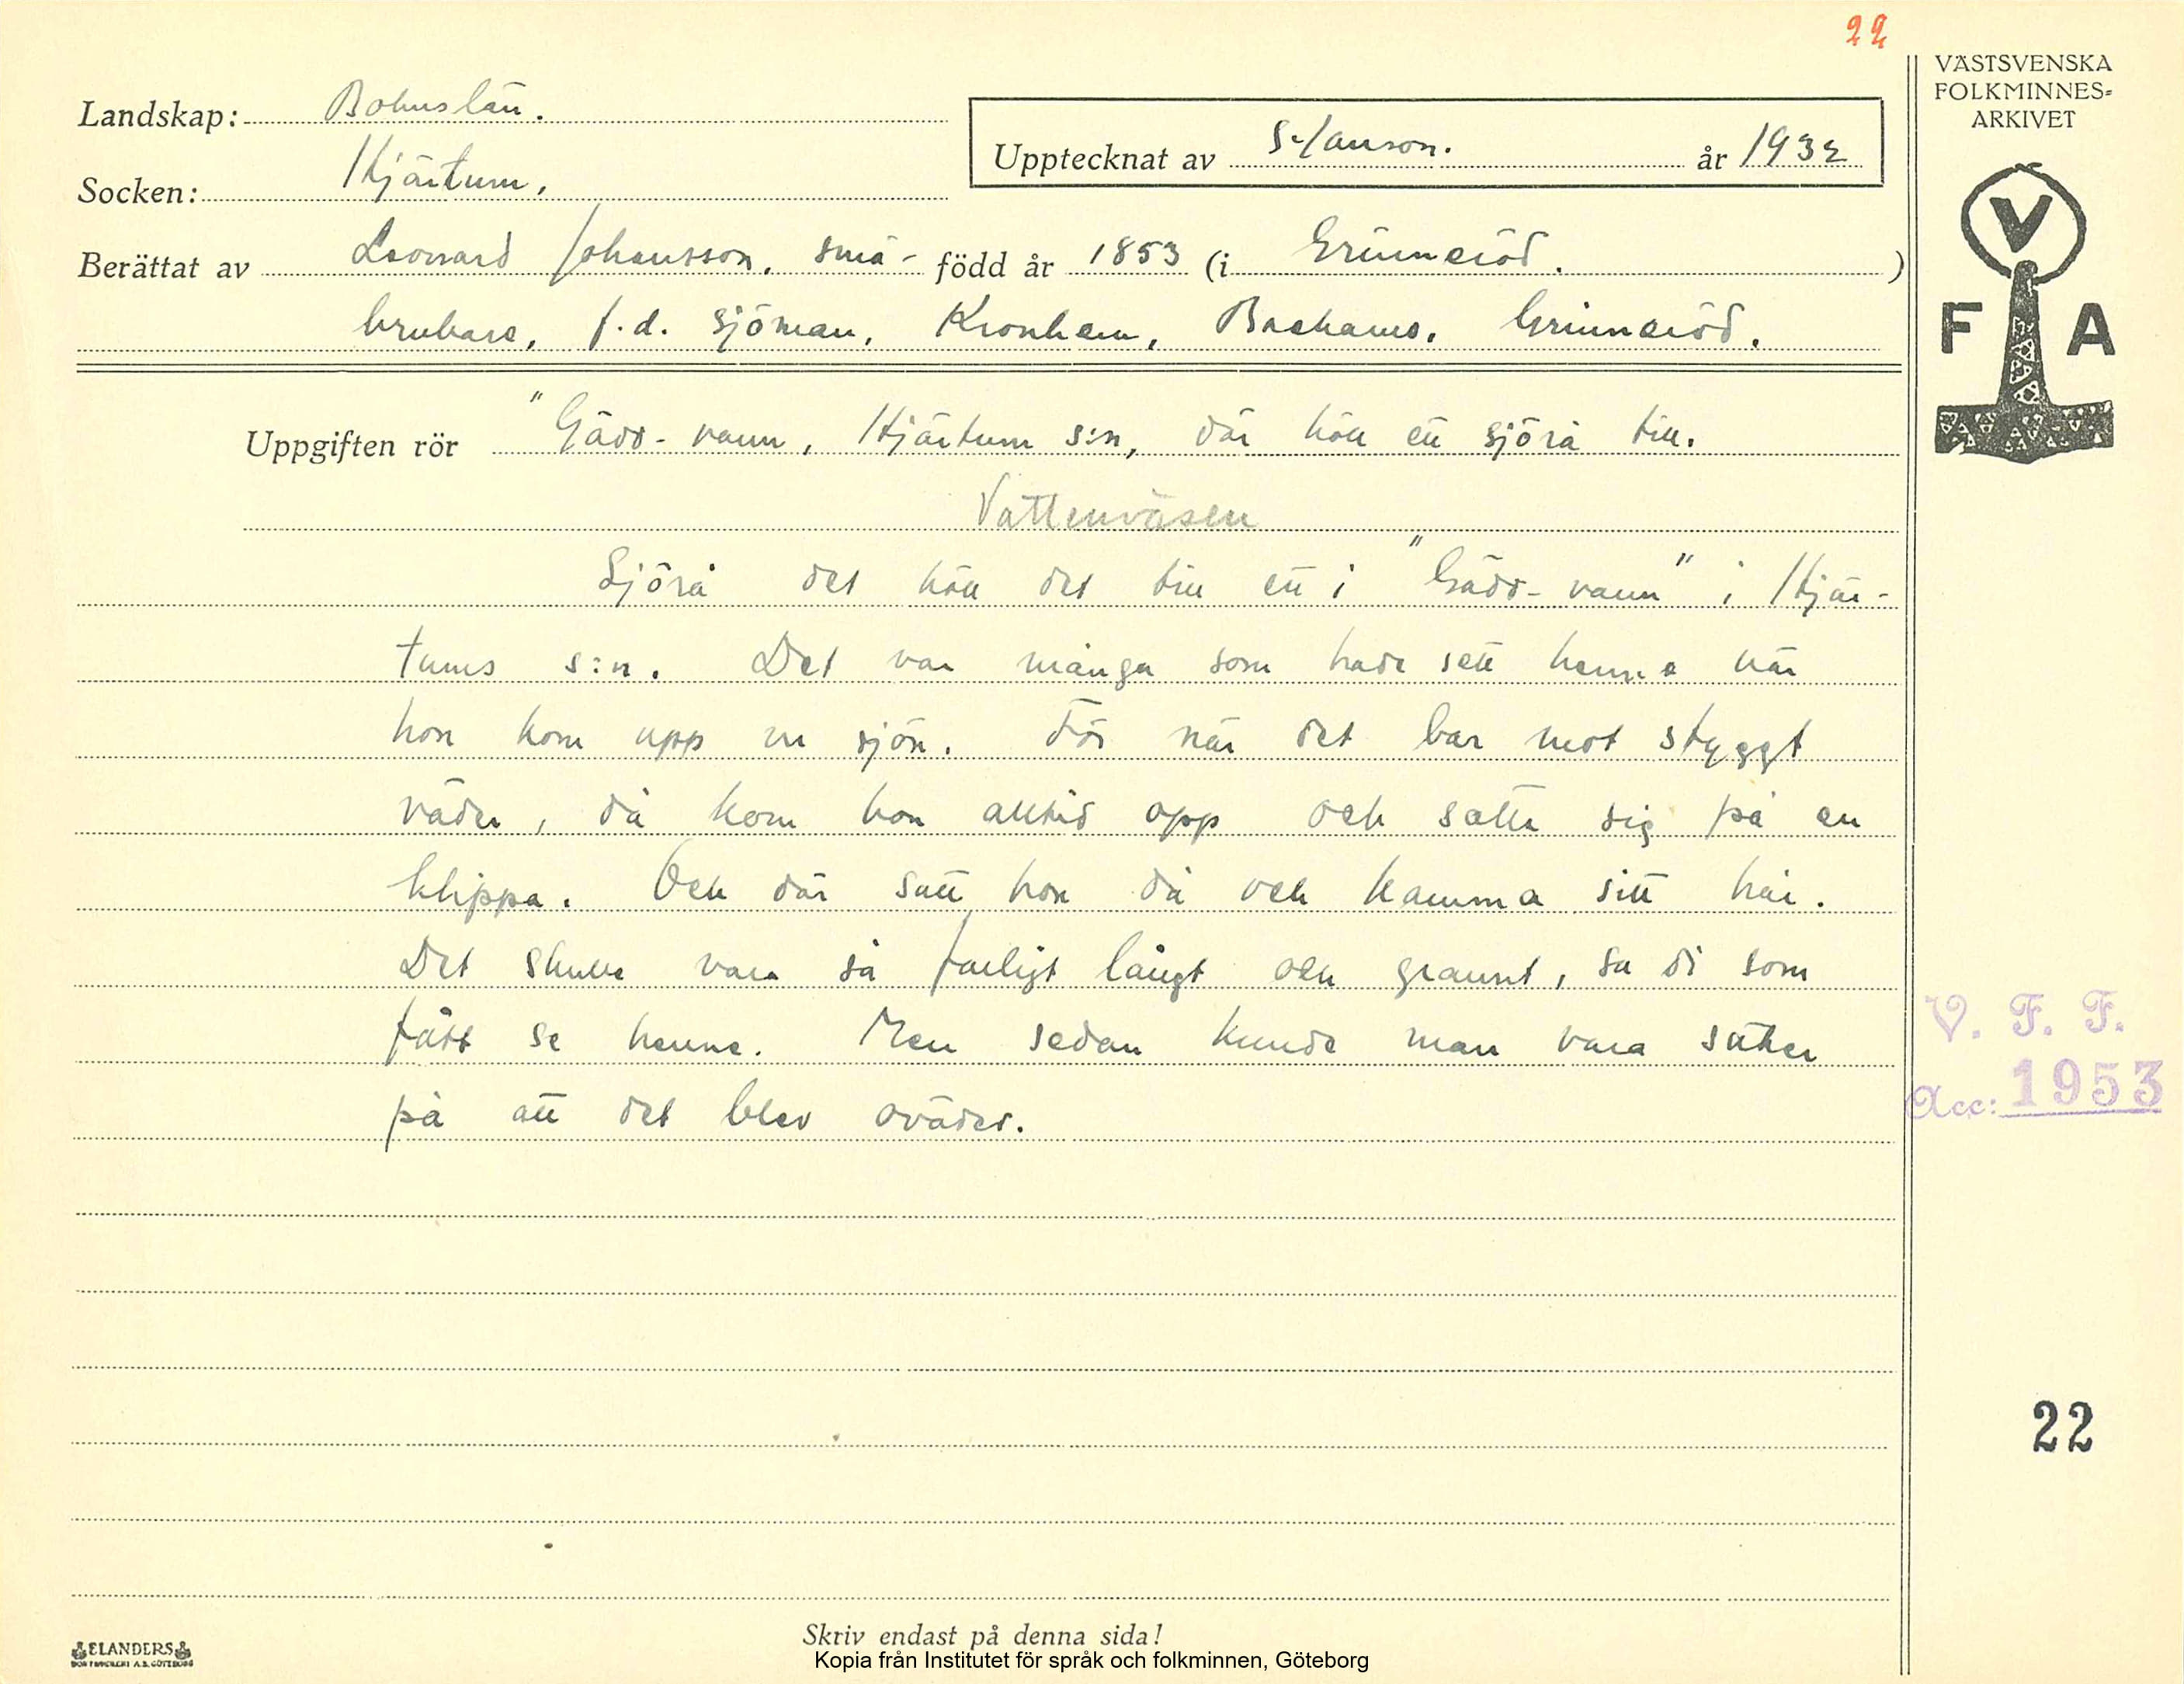 22
VÄSTSVENSKA
FOLKMINNES-
ARKIVET
Landskap: Bohuslän.
Upptecknat av år 1932
Socken: Hjärtum,
Berättat av Leonard Johansson, små- född år 1853 (i Grinneröd. )
brukare, f.d. sjöman, Kronhem, Backamo, Grinneröd.
V
F A
Uppgiften rör "Gädd-vann, Hjärtum s:n, där höll ett sjörå till.
Vattenväsen
Sjörå det höll det till ett i "Gädd-vann" i Hjär-
tums s:n. Det var många som hade sett henne när
hon kom upp ur sjön. För när det bar mot styggt
väder, då kom hon alltid opp och satte sig på en
klippa. Och där satt hon då och kamma sitt hår.
Det skulle vara så farligt långt och grannt, sa di som
fått se henne. Men sedan kunde man vara säker
på att det blev oväder.
V. F. F.
Acc: 1953
22
Skriv endast på denna sida!
Kopia från Institutet för språk och folkminnen, Göteborg
ELANDERS
BOKTRYCKERI A.B. GÖTEBORG